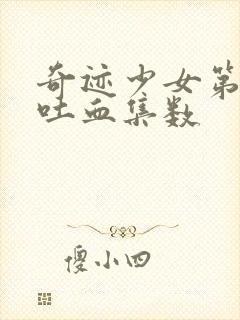 奇迹少女第
吐血集数
傻小四